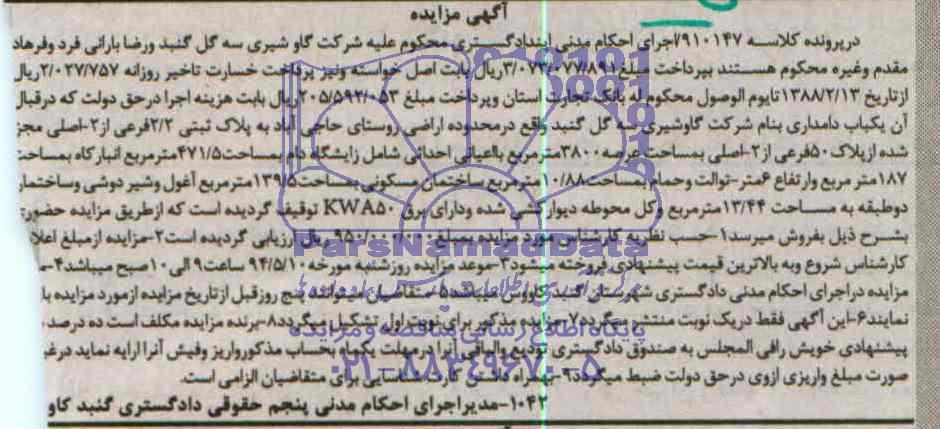 آگهی مزایده
درپرونده کلاسه ۷۹۱۰۱۴۷/اجرای احکام مدنی ابتدادگستری محکوم علیه شرکت گاو شیری سه گل گنبد ورضا بارانی فرد وفرهاد
مقدم وغیره محکوم هستند بپرداخت مبلغ ۳/۰۷۳/۰۷۷/۸۹۱ریال بابت اصل خواسته ونیز پرداخت خسارت تاخیر روزانه ۲/۰۲۷/۷۵۷ریال
ازتاریخ ۱۳۸۸/۲/۱۳تایوم الوصول محکوم له بانک تجارت استان وپرداخت مبلغ ۲۰۵/۵۹۲/۰۵۳ریال بابت هزینه اجرا درحق دولت که درقبال
آن یکباب دامداری بنام شرکت گاوشیری سه گل گنبد واقع درمحدوده اراضی روستای حاجی آباد به پلاک ثبتی ۲/۲فرعی از۲-اصلی مجز
شده ازپلاک ۵۰فرعی از۲-اصلی بمساحت عرصه ۳۸۰۰مترمربع بااعیانی احداثی شامل زایشگاه دام بمساحت۴۷۱/۵مترمربع انبارکاه بمساحت
۱۸۷متر مربع وارتفاع ۶متر-توالت وحمام بمساحت۱۰/۸۸مترمربع ساختمان مسکونی بمساحت۱۳۹/۵مترمربع آغول وشیر دوشی وساختمان
دوطبقه به مساحت ۱۳/۴۴مترمربع وکل محوطه دیوارکشی شده ودارای برق KWA۵۰ توقیف گردیده است که ازطریق مزایده حضوری
بشرح ذیل بفروش میرسد۱-حسب نظریه کارشناس مورد مزایده بمبلغ ۹۵۰/۰۰۰/۰۰۰ ریال ارزیابی گردیده است۲-مزایده ازمبلغ اعلا
کارشناس شروع وبه بالاترین قیمت پیشنهادی فروخته میشود۳-موعد مزایده روزشنبه مورخه ۹۴/۵/۱۰ ساعت۹ الی ۱۰صبح میباشد۴-
مزایده دراجرای احکام مدنی دادگستری شهرستان گنبد کاووس میباشد۵-متقاضیان میتوانند پنج روزقبل ازتاریخ مزایده ازمورد مزایده با
نمایند۶-این آگهی فقط دریک نوبت منتشر میگردد۷-مزایده مذکور برای نوبت اول تشکیل میگردد۸-برنده مزایده مکلف است ده درصد
پیشنهادی خویش رافی المجلس به صندوق دادگستری تودیع والباقی آنرا درمهلت یکماه بحساب مذکورواریز وفیش آنرا ارایه نماید درغیر
صورت مبلغ واریزی ازوی درحق دولت ضبط میگردد۹-بهمراه داشتن کارت شناسایی برای متقاضیان الزامی است.
۱۰۴۲-مدیراجرای احکام مدنی پنجم حقوقی دادگستری گنبد کاو
ParsNamadData
پایگاه اطلاع رسانی مناقصه و مزایده
۰۲۱-۸۸۳۴۹۶۷۰-۵